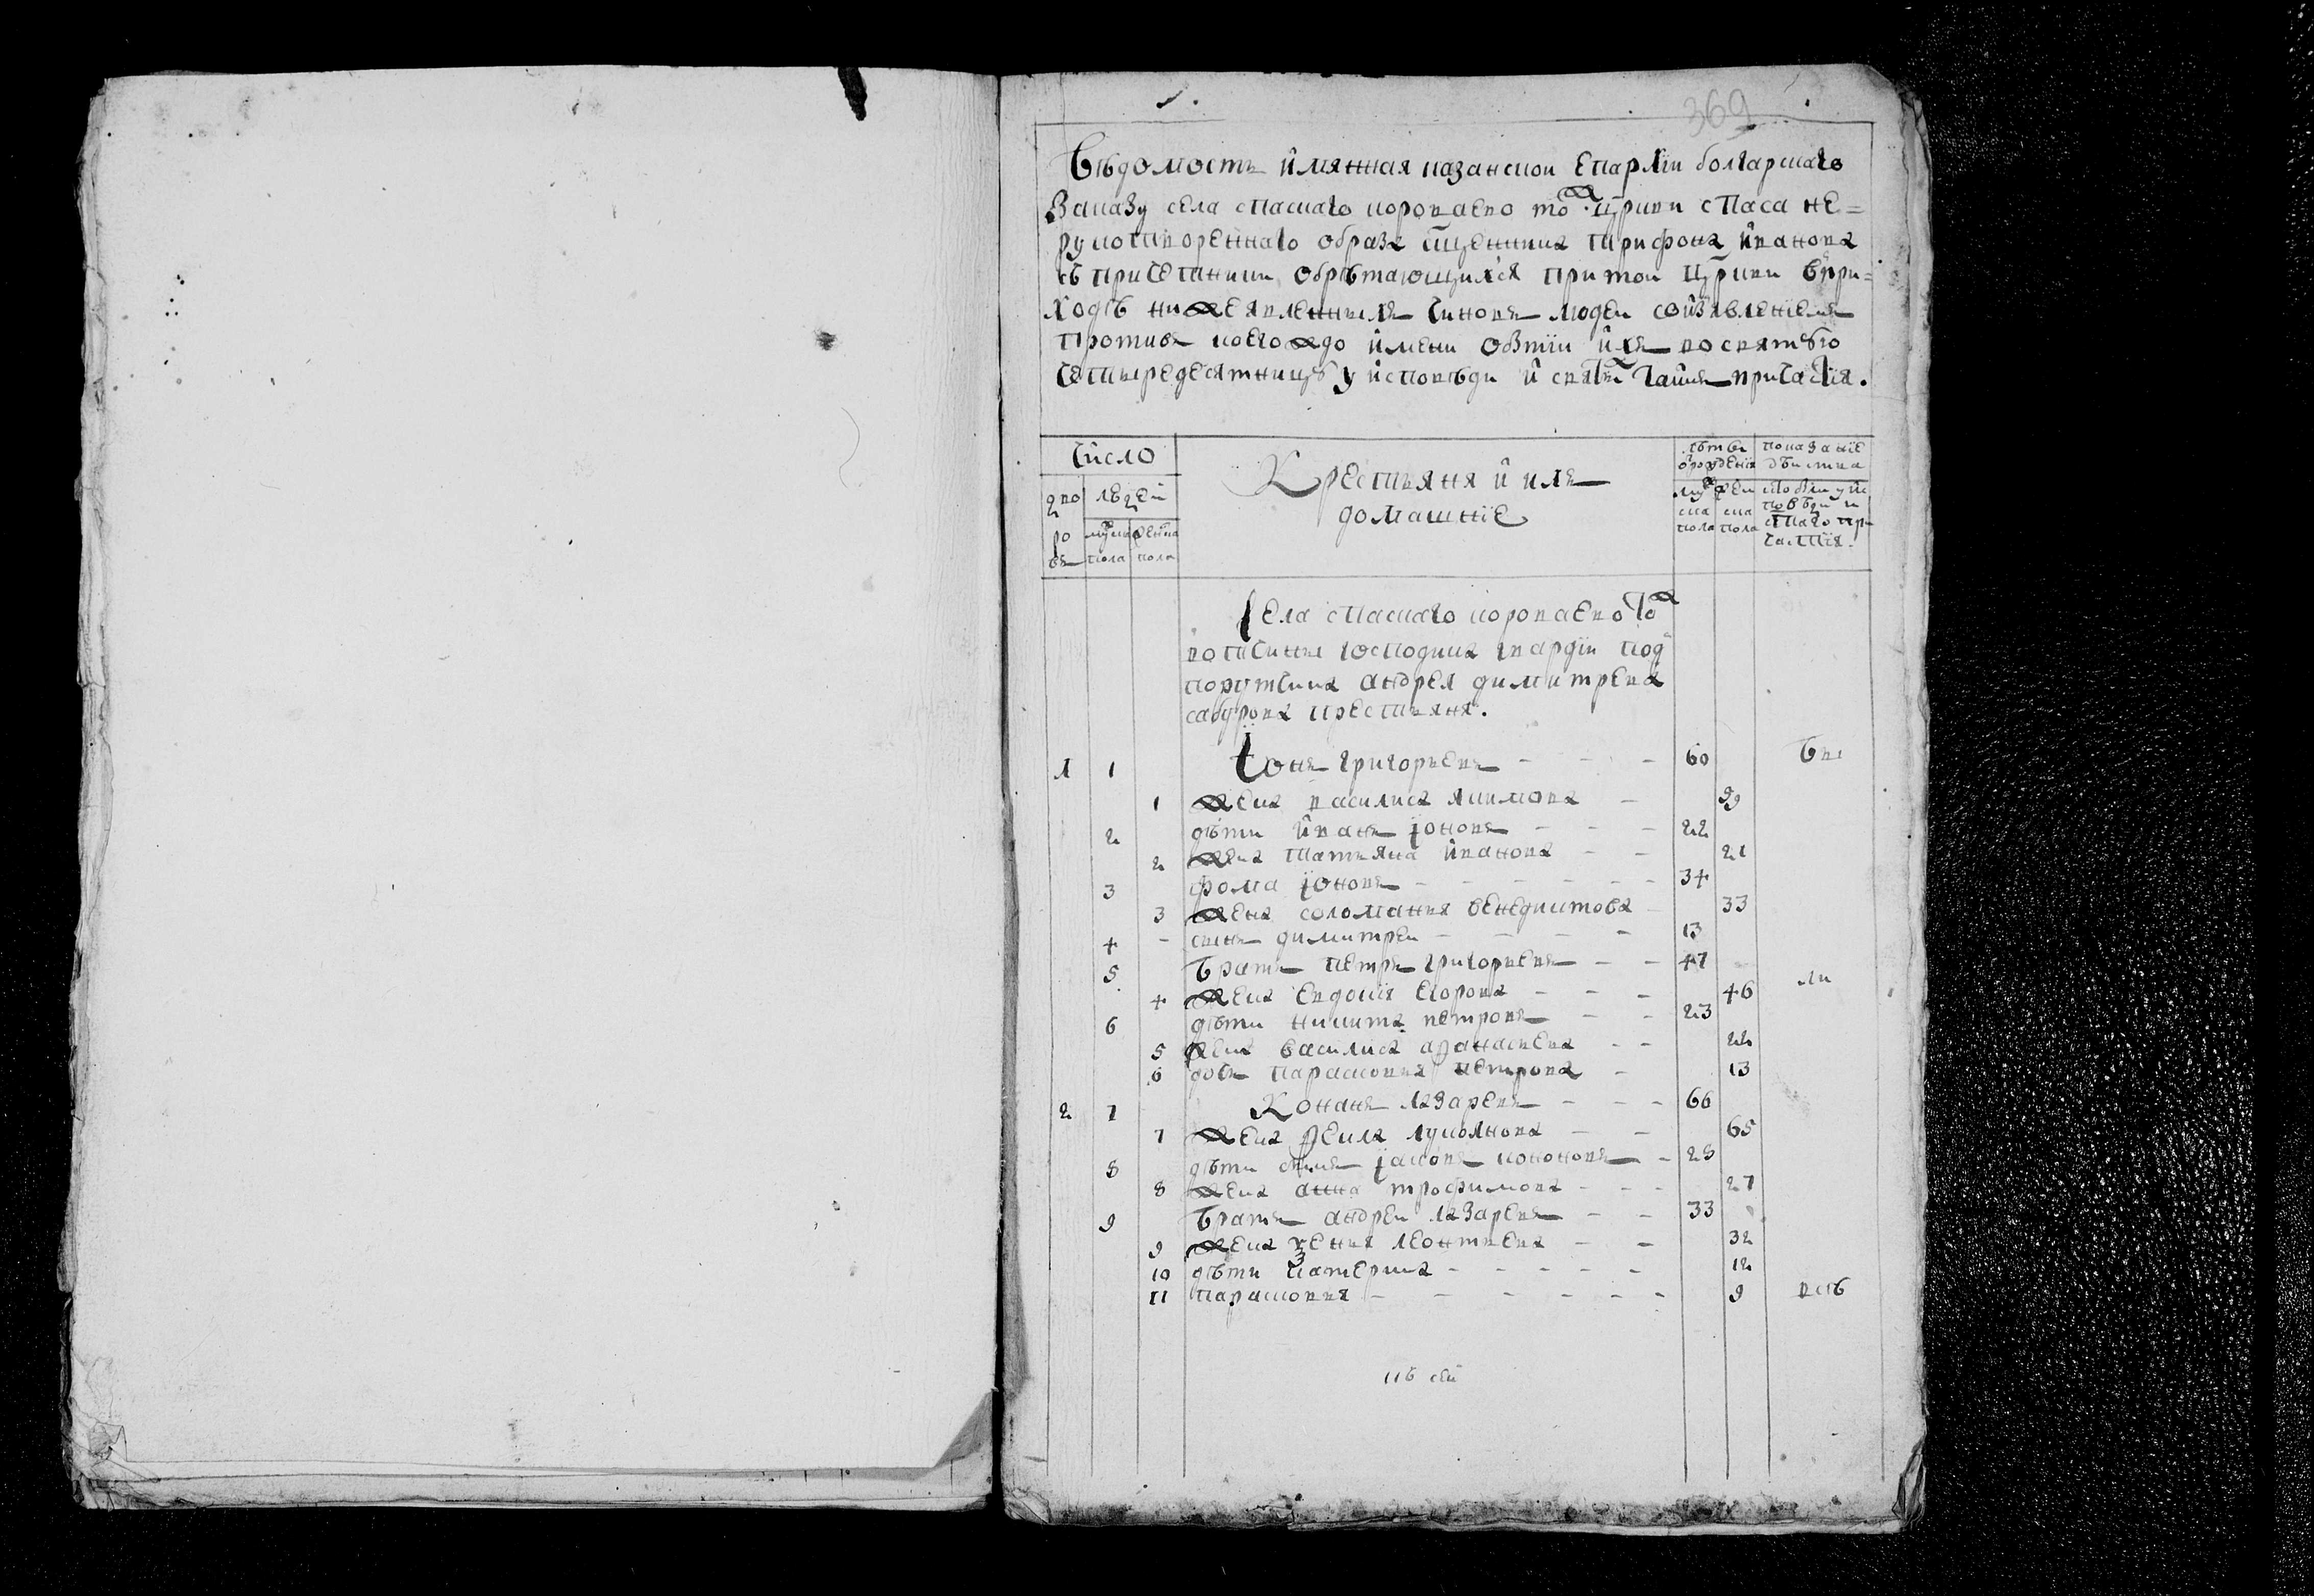 369
Вѣдомость имянная казанской епархїи болгарскаго
Заказу села спаскаго короваево тож црькви спаса не=
рукотвореннаго образа сщенника трифона иванова
съ причетники обрѣтающихся при той цркви въ при=
ходѣ нижеявленныхъ чиновъ людеи со изъявленїемъ
противъ коегождо имени о бытїи ихъ во святую
четыредесятницу у исповѣди и святыхъ таинъ причастїя.
Число
Крестьяня и ихъ
домашнїе
лѣтъ от рожденїя
показанїе дѣиства
дворовъ
людей
мужска пола
женска пола
мужска пола
женска пола
кто былъ у исповѣди и святаго причастїя.
Села спаскаго короваево тож
вотчины господина гвардїи под
порутчика андрея димитрева
сабурова крестьяня.
1 1 Iонъ григорьевъ 60 бы
1 жена василиса якимова 59
2 дѣти иванъ iоновъ 22
2 жена татьяна иванова 21
3 фома iоновъ 34
3 жена соломанья венедиктова 33
4 сынъ димитреи 13
5 братъ петръ григорьевъ 47
4 жена евдокїя егорова 46 ли
6 дѣти никита петровъ 23
5 жена василиса афанасьева 22
6 дочь парасковья петрова 13
2 7 Конанъ лазаревъ 66
7 жена фекла лукоянова 65
8 дѣти сынъ iаковъ кононовъ 28
8 жена анна трофимова 27
9 братъ андреи лазаревъ 33
9 жена ксенья леонтьева 32
10 дѣти катерина 12
11 парасковья 9 всѣ